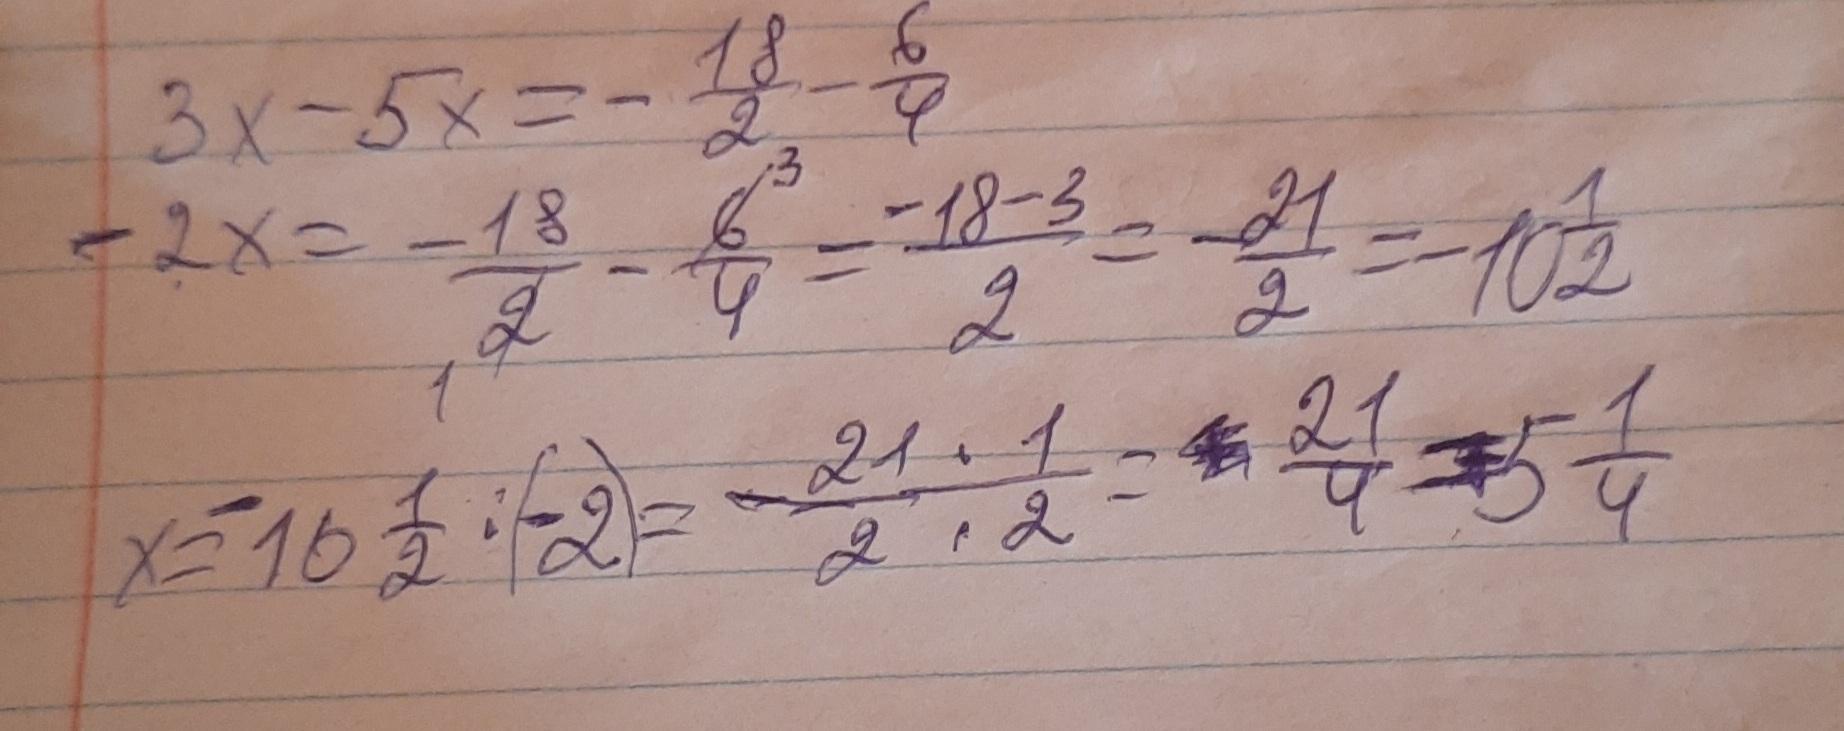 3x - 5x = - 18/2 - 6/4
- 2x = - 18/2 1 - 6/4 3 = -18-3/2 = - 21/2 = - 10 1/2
x = -10 1/2 : (-2) = - 21 · 1/2 · 2 = 21/4 = 5 1/4